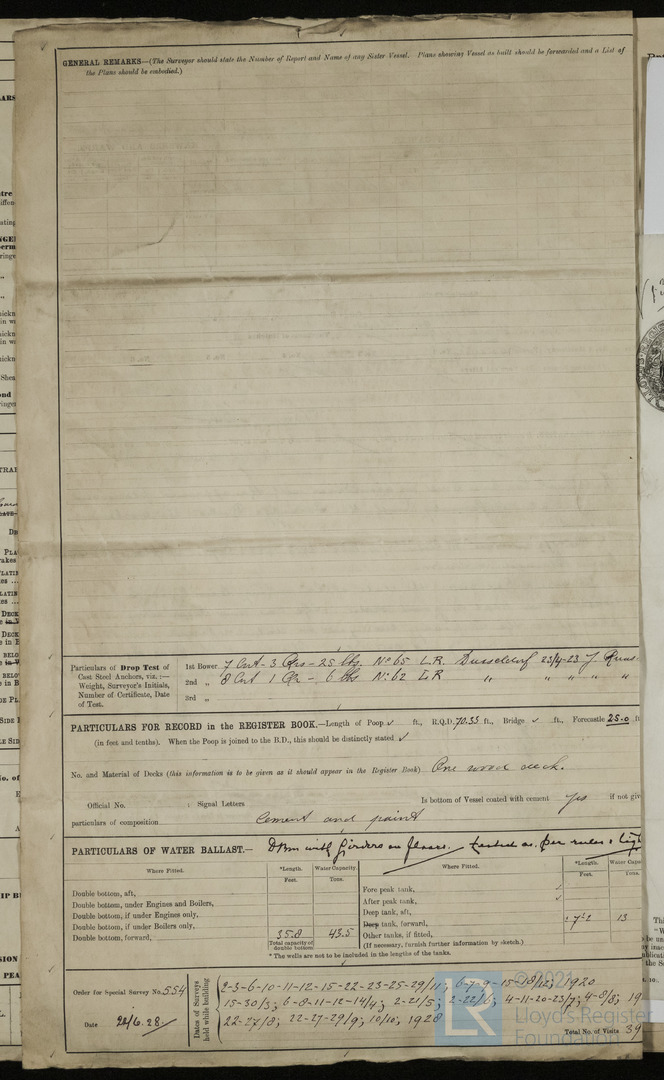 GENERAL REMARKS—(The Surveyor should state the Number of Report and Name of any Sister Vessel. Plans showing Vessel as built should be forwarded and a List of
the Plans should be embodied.)
Particulars of Drop Test of
Cast Steel Anchors, viz. :—
Weight, Surveyor's Initials,
Number of Certificate, Date
of Test.
1st Bower 7 Cwt - 3 Qrs - 25 lbs. No 65 L.R. Dusseldorf 23/4-23 J.
2nd „ 8 Cwt 1 Qr - 6 lbs No 62 LR „ „ „ „ „
3rd „
PARTICULARS FOR RECORD in the REGISTER BOOK.—Length of Poop ✓ ft., R.Q.D. 70.33 ft., Bridge ✓ ft., Forecastle 25.0 ft
(in feet and tenths). When the Poop is joined to the B.D., this should be distinctly stated ✓
No. and Material of Decks (this information is to be given as it should appear in the Register Book) One wood deck.
Official No. ; Signal Letters Is bottom of Vessel coated with cement Yes if not giv
particulars of composition Cement and paint
PARTICULARS OF WATER BALLAST.— with girders on floors. tested as per rules &
Where Fitted. *Length. Water Capacity. Where Fitted. *Length. Water Capac
Feet. Tons. Feet. Tons.
Double bottom, aft,
Double bottom, under Engines and Boilers,
Double bottom, if under Engines only,
Double bottom, if under Boilers only,
Double bottom, forward, 35.8 43.5
Total capacity of double bottom
Fore peak tank, ✓
After peak tank, ✓
Deep tank, aft,
Deep tank, forward, 7.2 13
Other tanks, if fitted,
(If necessary, furnish further information by sketch.)
* The wells are not to be included in the lengths of the tanks.
Order for Special Survey No. 554
Date 22/6.28.
Dates of Surveys held while building
2-3-6-10-11-12-15-22-23-25-29/11; 6-7-9-15-18/12; 1920
15-30/3; 6-8-11-12-14/4; 2-21/5; 2-22/6; 4-11-20-23/7; 4-8/8; 19
22-27/8; 22-27-29/9; 10/10; 1928
Total No. of Visits 39
© 2021
LR
Lloyd's Register
Foundation